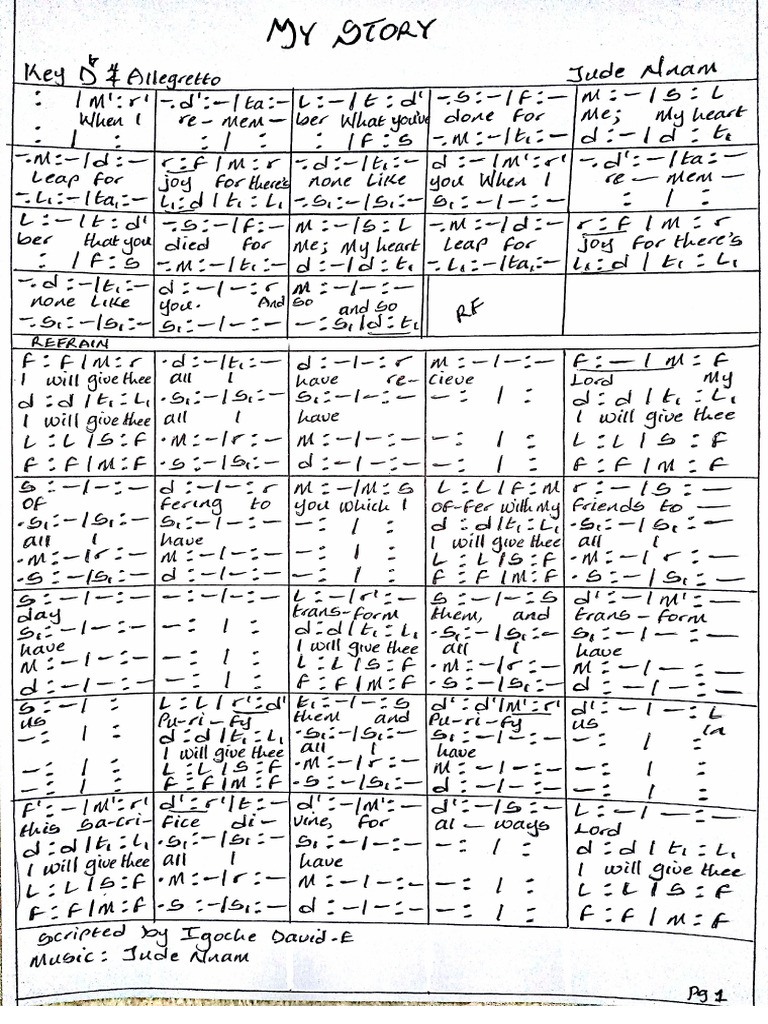 MY STORY
Key D♭ ₮ Allegretto Jude Nnam
: | m' : r' -. d' : - | ta : - L : - | t : d' -. s : - | f : - m : - | s : L
When I re - mem - ber What you've done for me; My heart
: | : : | : : | f : s -. m : - | t₁ : - d : - | d : t₁
-. m : - | d : - r : f | m : r -. d : - | t₁ : - d : - | m' : r' -. d' : - | ta : -
Leap for joy for there's none Like you When I re - mem -
-. L₁ : - | ta₁ : - L₁ : d | t₁ : L₁ -. s₁ : - | s₁ : - s₁ : - | - : : | :
L : - | t : d' -. s : - | f : - m : - | s : L -. m : - | d : - r : f | m : r
ber that you died for me; My heart Leap for joy for there's
: | f : s -. m : - | t₁ : - d : - | d : t₁ -. L₁ : - | ta₁ : - L₁ : d | t₁ : L₁
-. d : - | t₁ : - d : - | - : r m : - | - : -
none Like you. And so and so RF
-. s₁ : - | s₁ : - s₁ : - | - : - - : s₁ | d : t₁
REFRAIN
f : f | m : r . d : - | t₁ : - d : - | - : r m : - | - : - f : - | m : f
I will give thee all I have re- cieve Lord My
d : d | t₁ : L₁ . s₁ : - | s₁ : - s₁ : - | - : - - : | : d : d | t₁ : L₁
I will give thee all I have I will give thee
L : L | s : f . m : - | r : - m : - | - : - - : | : L : L | s : f
f : f | m : f . s : - | s₁ : - d : - | - : - - : | : f : f | m : f
s : - | - : - d : - | - : r m : - | m : s L : L | f : m r : - | s : -
of fering to you which I of-fer with My friends to
. s₁ : - | s₁ : - s₁ : - | - : - - : | : d : d | t₁ : L₁ . s₁ : - | s₁ : -
all I have I will give thee all I
. m : - | r : - m : - | - : - - : | : L : L | s : f . m : - | r : -
. s : - | s₁ : - d : - | - : - - : | : f : f | m : f . s : - | s₁ : -
s : - | - : - - : - | - : - L : - | r' : - s : - | - : s d' : - | m' : -
day trans-form them, and trans-form
s₁ : - | - : - - : | : d : d | t₁ : L₁ . s₁ : - | s₁ : - s₁ : - | - : -
have I will give thee all I have
m : - | - : - - : | : L : L | s : f . m : - | r : - m : - | - : -
d : - | - : - - : | : f : f | m : f . s : - | s₁ : - d : - | - : -
s : - | : L : L | r' : d' t₁ : - | - : s d' : d' | m' : r' d' : - | - : L
us Pu-ri-fy them and Pu-ri-fy us in
- : | : d : d | t₁ : L₁ . s₁ : - | s₁ : - s₁ : - | - : - - : | :
I will give thee all I have
- : | : L : L | s : f . m : - | r : - m : - | - : - - : | :
- : | : f : f | m : f . s : - | s₁ : - d : - | - : - - : | :
f' : - | m' : r' d' : r' | t : - d' : - | m' : - d' : - | s : - L : - | - : -
this sa-cri- fice di- vine, for al - ways Lord
d : d | t₁ : L₁ . s₁ : - | s₁ : - s₁ : - | - : - - : | : d : d | t₁ : L₁
I will give thee all I have I will give thee
L : L | s : f . m : - | r : - m : - | - : - - : | : L : L | s : f
f : f | m : f . s : - | s₁ : - d : - | - : - - : | : f : f | m : f
Scripted by Igoche David-E
Music: Jude Nnam
Pg 1